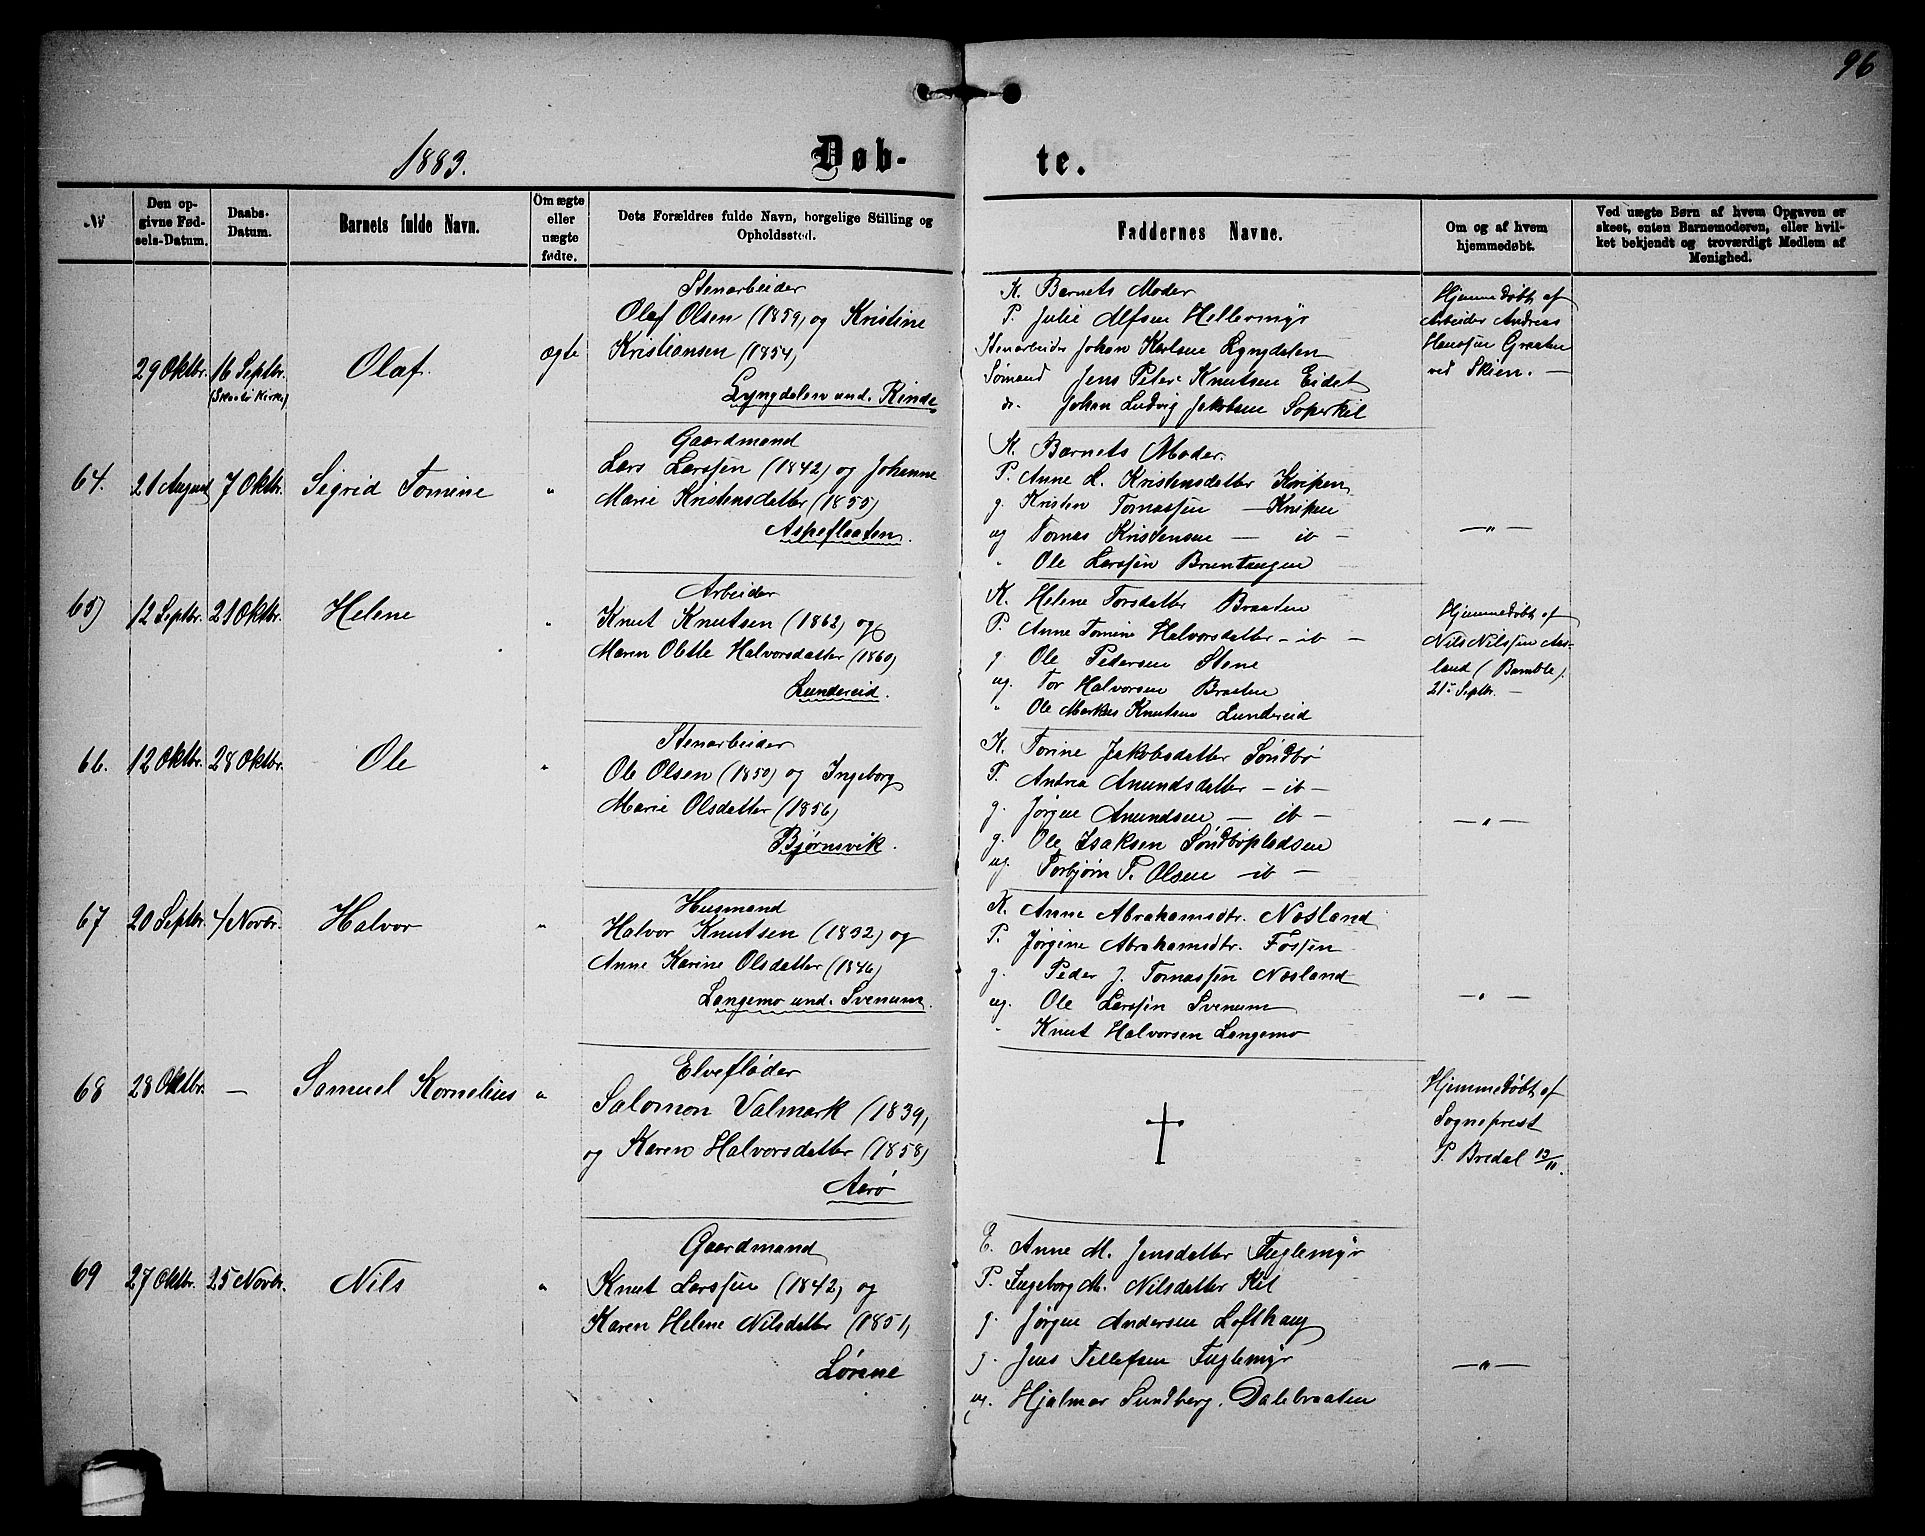 96
1883.
Døb-
te.
№
Den op-
givne Fød-
sels-Datum.
Daabs-
Datum.
Barnets fulde Navn.
Om ægte
eller
uægte
fødte.
Dets Forældres fulde Navn, borgelige Stilling og
Opholdssted.
Faddernes Navne.
Om og af hvem
hjemmedøbt.
Ved uægte Børn af hvem Opgaven er
skeet, enten Barnemoderen, eller hvil-
ket bekjendt og troværdigt Medlem af
Menighed.
29 Oktbr.
16 Septbr.
Olaf.
ægte
Stenarbeider
Olaf Olsen (1859) og Kristine
Kristiansen (1854)
Lyngdalen und. Rinde
K. Barnets Moder
P. Julie Alfsen Hellermyr
Stenarbeider Johan Karlsen Lyngdalen
Sømand Jens Peter Knutsen Eidet
Johan Ludvig Jakobsen
Hjemmedøbt af
Arbeider Andreas
Hanssen Graaten
ved Skien. —
64.
21 August
7 Oktbr.
Sigrid Tomine
"
Gaardmand
Lars Larssen (1842) og Johanne
Marie Kristensdatter (1855)
Aspeflaaten.
K. Barnets Moder.
P. Anne L. Kristensdatter Knipen
g. Kristen Tomassen — Knipen
ug Tomas Kristensen — ib —
" Ole Larssen Bruntangen
— " —
65)
12 Septbr.
21 Oktbr.
Helene
"
Arbeider
Knut Knutsen (1862) og
Maren Olette Halvorsdatter (1860)
Lundereid.
K. Helene Torsdatter Braaten
P. Anne Tomine Halvorsdatter — ib —
g. Ole Pedersen Stene
ug. Tor Halvorsen Braaten
" Ole Markus Knutsen Lundereid
Hjemmedøbt af
Nils Nilssen Aas-
land (Bamble)
21 Septbr. —
66.
12 Oktbr.
28 Oktbr.
Ole
"
Stenarbeider
Ole Olsen (1850) og Ingeborg
Marie Olsdatter (1856)
Bjørnsvik.
K. Torine Jakobsdatter Søndbø
P. Andrea Anundsdatter — ib —
g. Jørgen Anundsen — ib —
g. Ole Isaksen Søndbøpladsen
ug. Torbjørn P. Olsen — ib —
— " —
67
20 Septbr.
4 Novbr.
Halvor
"
Husmand
Halvor Knutsen (1832) og
Anne Karine Olsdatter (1846)
Langemo und. Svenum.
K. Anne Abrahamsdtr. Nosland
P. Jørgine Abrahamsdtr. Fossen
g. Peder J. Tomassen Nosland
ug. Ole Larssen Svenum
" Knut Halvorsen Langemo
— " —
68
28 Oktbr.
—
Samuel Kornelius
"
Elvefløder
Salomon Valmark (1839)
og Karen Halvorsdatter (1858)
Aarø
Hjemmedøbt af
Sogneprest
P. Bredal 13/11.
69
27 Oktbr.
25 Novbr.
Nils
"
Gaardmand
Knut Larssen (1842) og
Karen Helene Nilsdatter (1851)
Lørene
E. Anne M. Jensdatter Fuglemyr
P. Ingeborg M. Nilsdatter Kil
g. Jørgen Andersen Lofthaug
g. Jens Tellefsen Fuglemyr
ug. Hjalmar Sundberg. Dalebraaten
— " —